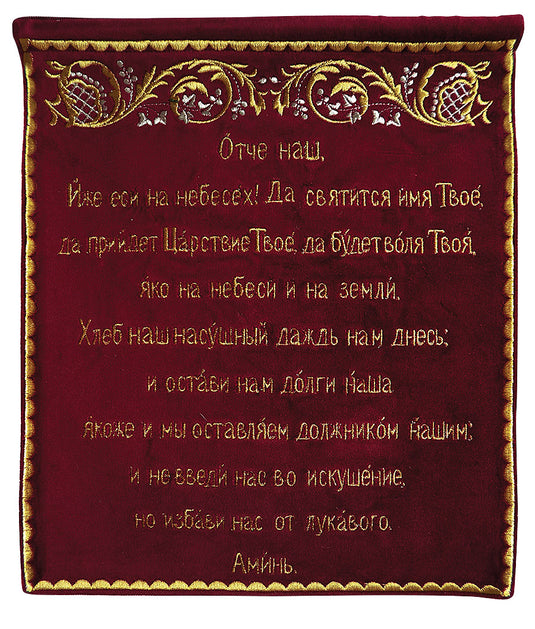 О́тче наш,
И́же еси́ на небесе́х! Да святи́тся и́мя Твое́,
да прии́дет Ца́рствие Твое́, да бу́дет во́ля Твоя́,
я́ко на небеси́ и на земли́.
Хлеб наш насу́щный даждь нам днесь;
и оста́ви нам до́лги на́ша
я́коже и мы оставля́ем должнико́м на́шим;
и не введи́ нас во искуше́ние,
но изба́ви нас от лука́вого.
Ами́нь.